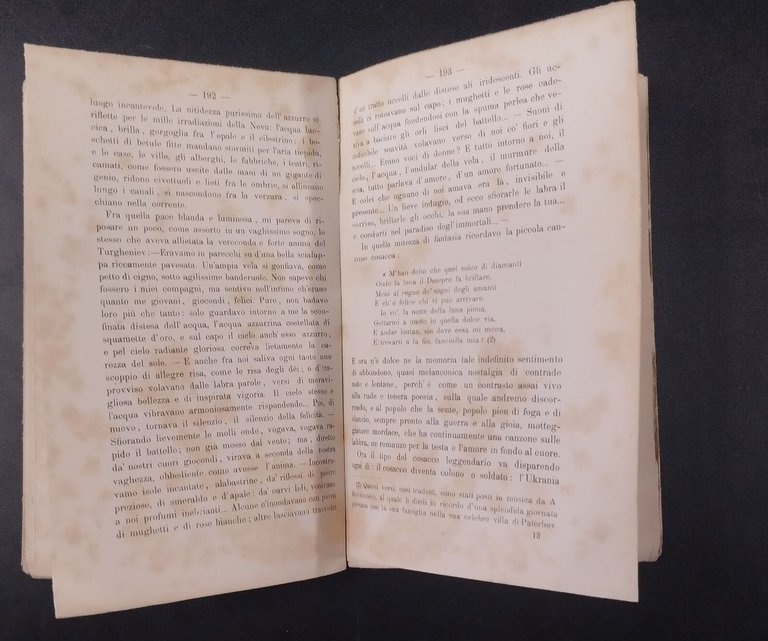 — 192 —
luogo incantevole. La nitidezza purissima dell'azzurro si
riflette per le mille irradiazioni della Neva l'acqua luc-
cica, brilla, gorgoglia fra l'opale e il cilestrino: i bo-
schetti di betule fitte mandano stormiti per l'aria tiepida,
e le case, le ville, gli alberghi, le fabbriche, i teatri, ri-
camati, come fossero usciti dalle mani di un gigante di
genio, ridono civettuoli e lieti fra le ombrie, si allineano
lungo i canali, si nascondono fra la verzura, si spec-
chiano nella corrente.
Fra quella pace blanda e luminosa, mi pareva di ri-
posare un poco, come assorto in un vaghissimo sogno, lo
stesso che aveva allietata la vereconda e forte anima del
Turgheniev:—Eravamo in parecchi su d'una bella scialup-
pa riccamente pavesata. Un'ampia vela si gonfiava, come
petto di cigno, sotto agilissime banderuole. Non sapevo chi
fossero i miei compagni, ma sentivo nell'intimo ch'erano
quanto me giovani, giocondi, felici Pure, non badavo
loro più che tanto: solo guardavo intorno a me la scon-
finata distesa dell'acqua, l'acqua azzurrina costellata di
squamette d'oro, e sul capo il cielo anch'esso azzurro,
e pel cielo radiante gloriosa correva lietamente la ca-
rezza del sole. — E anche fra noi saliva ogni tanto uno
scoppio di allegre risa, come le risa degli dèi; o d'im-
provviso volavano dalle labra parole, versi di meravi-
gliosa bellezza e di inspirata vigoria. Il cielo stesso e
l'acqua vibravano armoniosamente rispondendo... Poi, di
nuovo, tornava il silenzio, il silenzio della felicità. —
Sfiorando lievemente le molli onde, vogava, vogava ra-
pido il battello; non già mosso dal vento; ma, diretto
da' nostri cuori giocondi, virava a seconda della nostra
vaghezza, obbediente come avesse l'anima. — Incontra-
vamo isole incantate, alabastrine, da' riflessi di pietre
preziose, di smeraldo e d'opale: da' curvi lidi, venivano
a noi profumi inebrianti... Alcune c'inondavano con piova
di mughetti e di rose bianche; altre lasciavano travolar
— 193 —
d'un tratto uccelli dallo distese ali iridescenti. Gli uc-
celli ci roteavano sul capo; i mughetti e le rose cade-
vano sull'acqua fondendosi con la spuma perlea che ve-
niva a baciare gli orli lisci del battello... — Suoni di
indicibile soavità volavano verso di noi co' fiori e gli
uccelli... Erano voci di donne? E tutto intorno a noi, il
cielo, l'acqua, l'ondular della vela, il murmure della
scia, tutto parlava d'amore, d'un amore fortunato... —
E colei che ognuno di noi amava era là, invisibile e
presente... Un lieve indugio, ed ecco sfiorarle le labra il
sorriso, brillarle gli occhi, la sua mano prendere la tua...
e condurti nel paradiso degl'immortali... —
In quella mitezza di fantasia ricordavo la piccola can-
zone cosacca:
« M'han detto che quei solco di diamanti
Onde la luna il Dnieper fa brillare,
Meni al regno de' sogni degli amanti
E ch'è felice chi vi può arrivare.
Io vo', la notte della luna piena,
Gettarmi a nuoto in quella dolce via,
E andar lontan, sin dove essa mi mena,
E trovarti a la fin, fanciulla mia! (2)
E ora n'è dolce ne la memoria tale indefinito sentimento
di abbandono, quasi melanconica nostalgia di contrade
note e lontane, perch'è come un contrasto assai vivo
alla rude e tenera poesia, sulla quale andremo discor-
rendo, e al popolo che la sente, popolo pien di foga e di
slancio, sempre pronto alla guerra e alla gioia, motteg-
giatore mordace, che ha continuamente una canzone sulle
labbra, un romanzo per la testa e l'amore in fondo al cuore.
Ora il tipo del cosacco leggendario va disparendo
ogni dì: il cosacco diventa colono o soldato: l'Ukrania
(2) Questi versi, così tradotti, sono stati posti in musica da A
al quale li diedi in ricordo d'una splendida giornata
passata con la sua famiglia nella sua celebre villa di Paterhov.
13